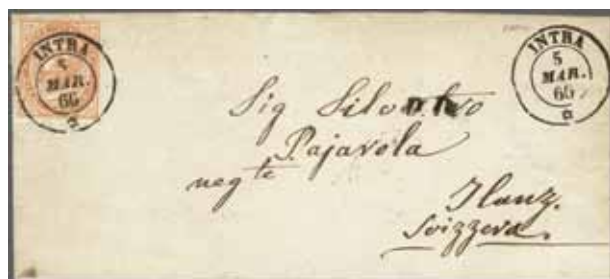 INTRA
5
MAR.
66
INTRA
5
MAR.
66
Sig Silvestro
Pajarola
neg.te
Ilanz.
Svizzera.